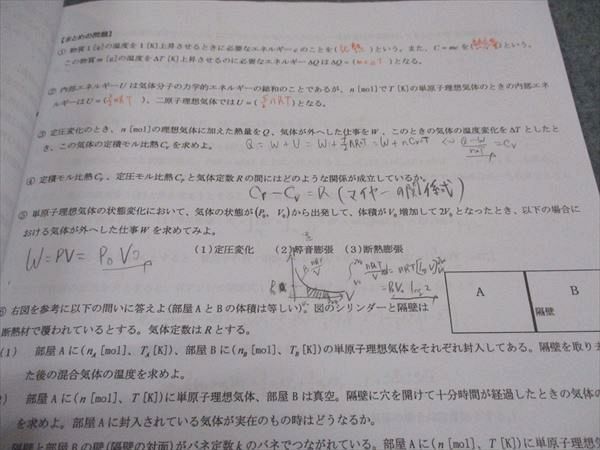 【まとめの問題】
① 物質1[g]の温度を1[K]上昇させるときに必要なエネルギーcのことを(比熱)という。また、C=mcを(熱容量)という。
この物質m[g]の温度をΔT[K]上昇させるのに必要なエネルギーΔQはΔQ=(mcΔT)となる。
② 内部エネルギーUは気体分子の力学的エネルギーの総和のことであるが、n[mol]でT[K]の単原子理想気体のときの内部エネ
ルギーはU=(3/2 nRT)、二原子理想気体ではU=(5/2 nRT)となる。
③ 定圧変化のとき、n[mol]の理想気体に加えた熱量をQ、気体が外へした仕事をW、このときの気体の温度変化をΔTとしたと
き、この気体の定積モル比熱Cvを求めよ。 Q = W + U = W +
④ 定積モル比熱Cv、定圧モル比熱Cpと気体定数Rの間にはどのような関係が成立しているか。
Cp − Cv = R (マイヤーの関係式)
⑤ 単原子理想気体の状態変化において、気体の状態が(P₀, V₀)から出発して、体積がV₀増加して2V₀となったとき、以下の場合に
おける気体が外へした仕事Wを求めてみよ。
(1)定圧変化 (2)等音膨張 (3)断熱膨張
W = PV = P₀V₀
右図を参考に以下の問いに答えよ(部屋AとBの体積は等しい)。図のシリンダーと隔壁は
断熱材で覆われているとする。気体定数はRとする。
A B
隔壁
(1) 部屋Aに(nA[mol]、TA[K])、部屋Bに(nB[mol]、TB[K])の単原子理想気体をそれぞれ封入してある。隔壁を取り去
た後の混合気体の温度を求めよ。
部屋Aに(n[mol]、T[K])に単原子理想気体、部屋Bは真空。隔壁に穴を開けて十分時間が経過したときの気体の
を求めよ。部屋Aに封入されている気体が実在のもの時はどうなるか。
隔壁と部屋Bの壁(隔壁の対面)がバネ定数kのバネでつながれている。部屋Aに(n[mol]、T[K])に単原子理想